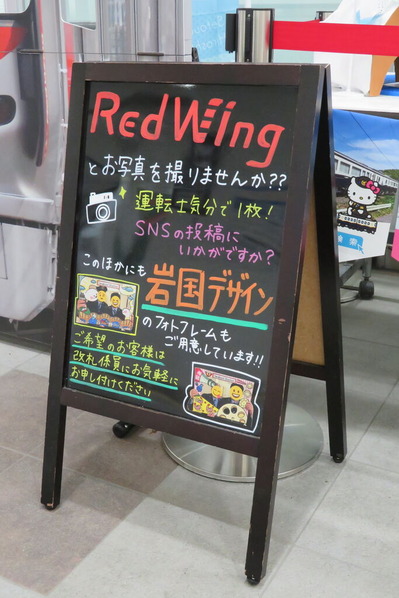 Red Wing
とお写真を撮りませんか??
運転士気分で1枚!
SNSの投稿に
いかがですか?
このほかにも
岩国デザイン
のフォトフレームも
ご用意しています!!
ご希望のお客様は
改札係員にお気軽に
お申し付けください